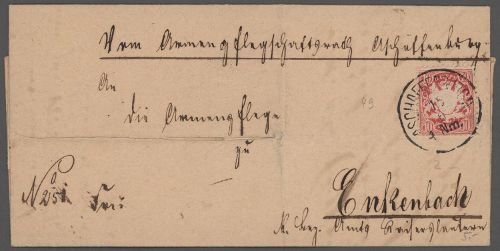 Vom Armenpflegschaftsrath Aschaffenburg.
An
die Armenpflege
zu
№ 251
Frei
Enkenbach
K. Bez. Amts Kaiserslautern
ASCHAFFENBURG
Nm.
10